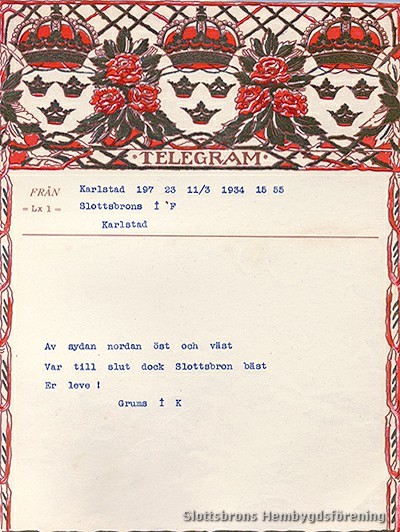 · TELEGRAM ·
FRÅN
= Lx 1 =
Karlstad 197 23 11/3 1934 15 55
Slottsbrons I`F
Karlstad
Av sydan nordan öst och väst
Var till slut dock Slottsbron bäst
Er leve !
Grums I K
Slottsbrons Hembygdsförening